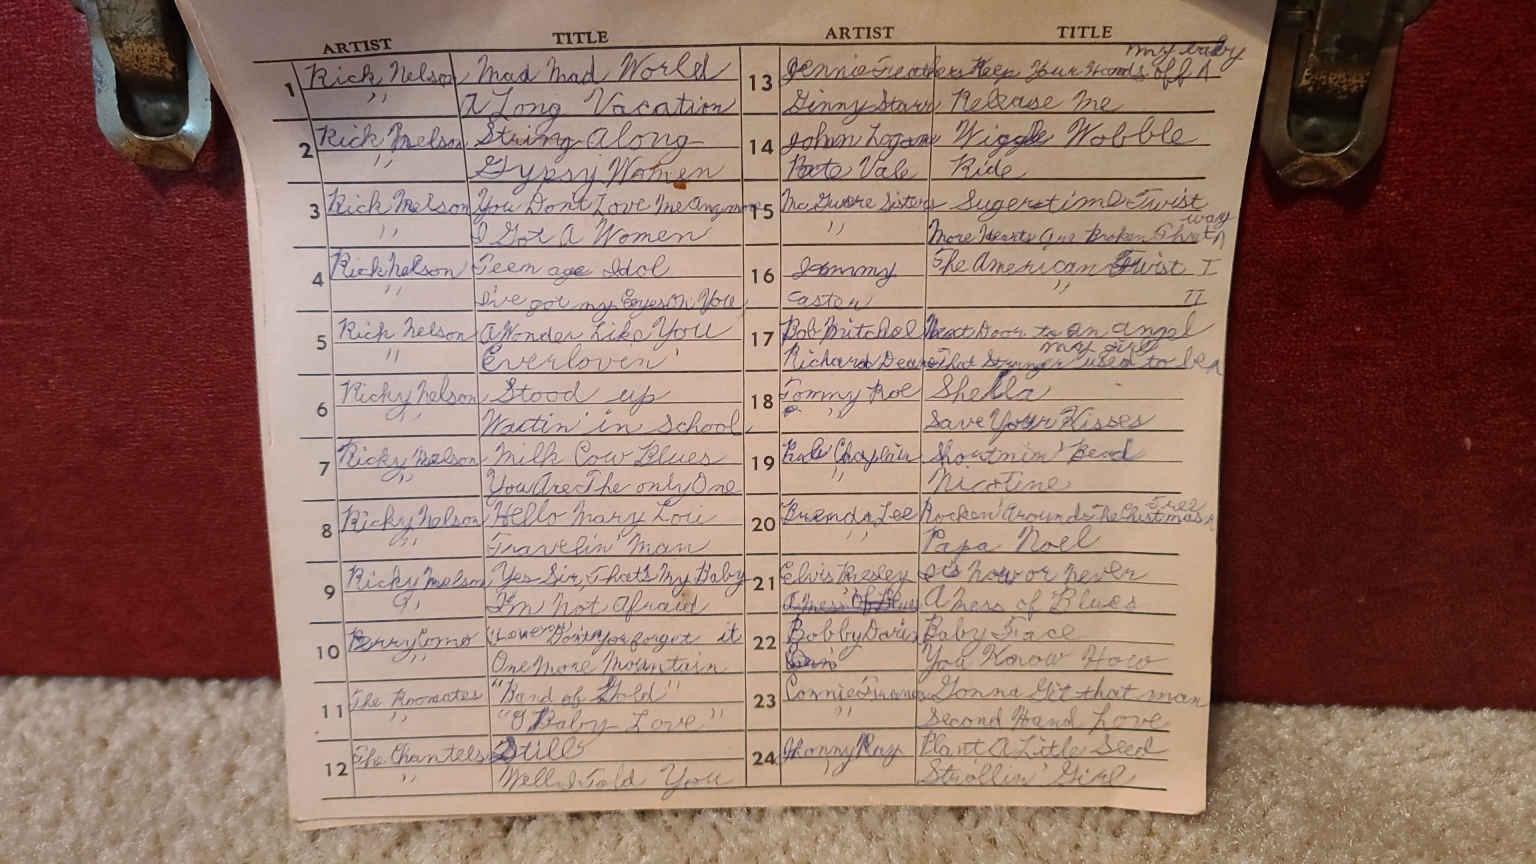 ARTIST TITLE
1 Rick Nelson Mad Mad World
" A Long Vacation
2 Rick Nelson String Along
" Gypsy Women
3 Rick Nelson You Dont Love Me Anymore
" I Got A Women
4 Rick Nelson Teen age Idol
" I've got my Eyes On You
5 Rick Nelson A Wonder Like You
" Everlovin'
6 Ricky Nelson Stood up
" Waitin' in School
7 Ricky Nelson Milk Cow Blues
" You Are The only One
8 Ricky Nelson Hello Mary Lou
" Travelin' Man
9 Ricky Nelson Yes Sir, That's My Baby
" I'm Not Afraid
10 Perry Como Don't you forget it
" One More Mountain
11 The Roomates "Band of Gold"
" "O Baby Love"
12 The Chantels Still
" Well I Told You
ARTIST TITLE
my baby
13 Jennie Keep Your Hands off ^
Ginny Starr Release Me
14 John Logan Wiggle Wobble
Nate Vale Ride
15 McGuire Sisters Sugertime Twist
way
" More Hearts Are Broken That ^
16 Jimmy The American Twist I
Easter " II
17 Bob Mitchel Next Door to an angel
my girl
Richard Deane That Stranger used to be ^
18 Tommy Roe Sheila
" Save Your Kisses
19 Chaplain Shoutnin'
" Nicotine
Tree
20 Brenda Lee Rocken' Around The Christmas ^
" Papa Noel
21 Elvis Presley It's now or never
A Mess of Blues A Mess of Blues
22 Bobby Darin Baby Face
You Know How
23 Connie Francis Gonna Git that man
" Second Hand Love
24 Jhonny Ray Plant A Little Seed
" Strollin' Girl